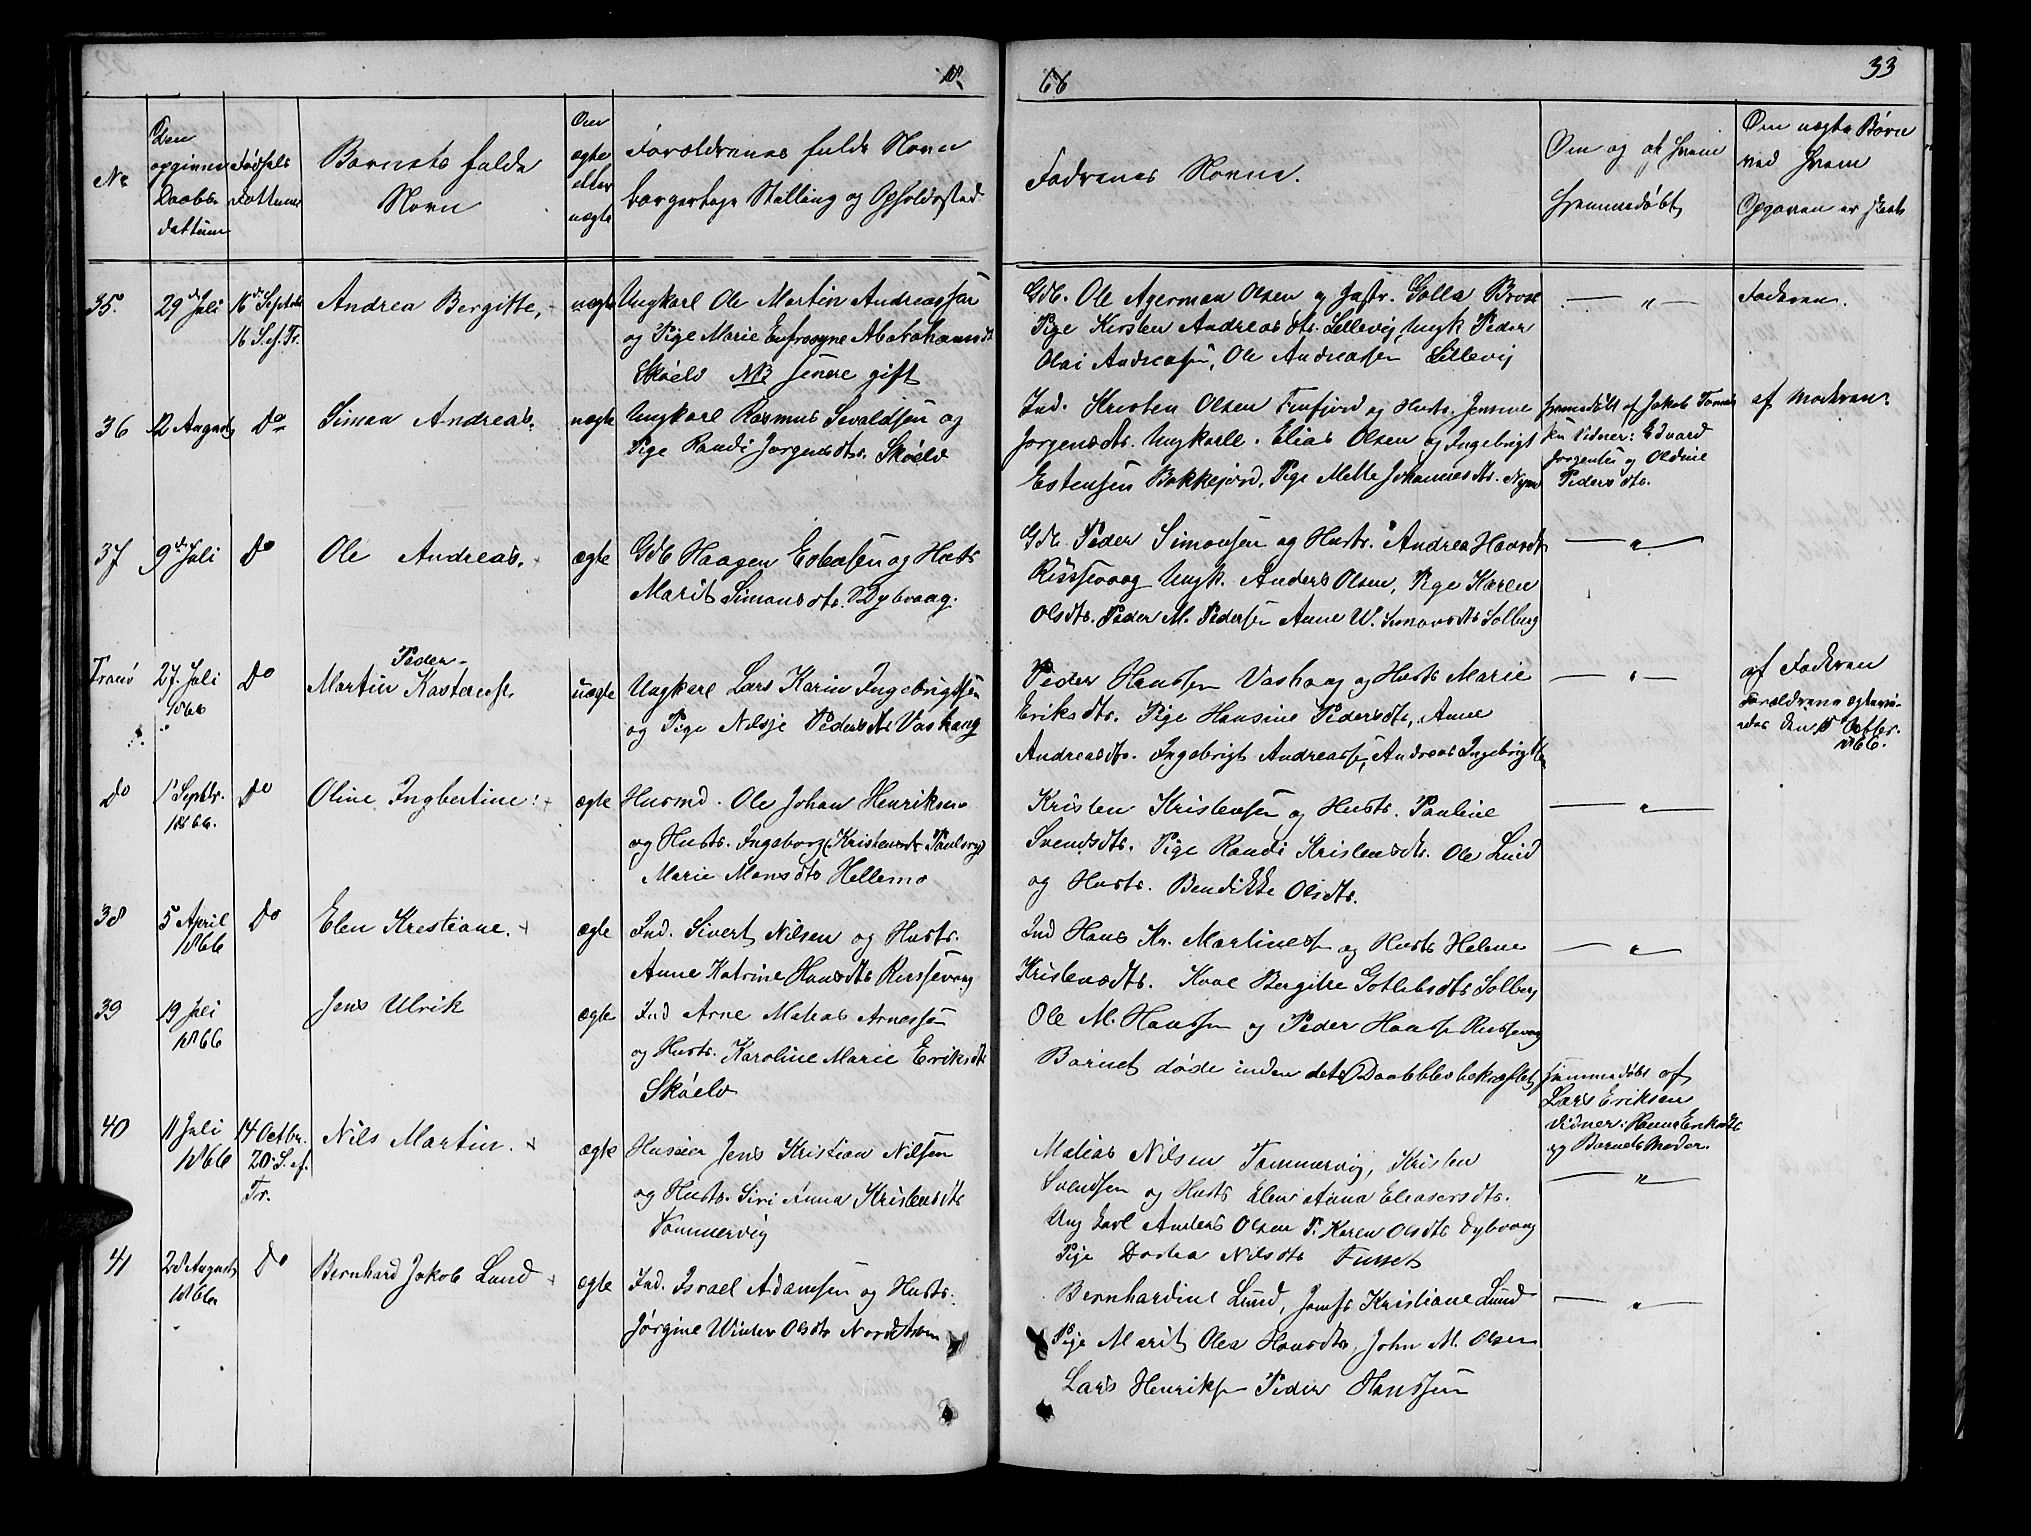 18
66
33
No
Den
opgivne
Daabs
dattum
Fødsels
Dattum
Barnets fulde
Navn
Om
ægte
eller
uægte
Forældrenes fulde Navn
borgerlige Stilling og Opholdssted
Fadrenes Navne.
Om og af hvem
hjemmedøbt
Om uægte Børn
ved hvem
Opgaven er skeet
35.
29de Juli
16de Septebr
16 S. ef. Tr.
Andrea Bergitte,
uægte
Ungkarl Ole Martin Andreassen
og Pige Marie Eufrosyne Abrahamsdt
Skøelv NB senere gift
Gdb. Ole Agerman Olsen og
Pige Kirsten Andreasdtr. Lillevig, Ungk Peder
Olai Andreasen, Ole Andreassen Lillevig
— " —
Faderen.
36
12 August
Do
Simon Andreas.
uægte
Ungkarl Rasmus Sivaldsen og
Pige Randi Jørgensdtr. Skøelv
Ind. Kristen Olsen Finfjord og Hustr. Jensine
Jørgensdtr. Ungkarle. Elias Olsen og Ingebrigt
Estensen Bakkejord, Pige Mette Johannesdtr.
hjemdøbt af Jakob
Vidner: Edvard
Jørgensen og Oldine
Pedersdtr.
af Moderen.
37
9de Juli
Do
Ole Andreas.
ægte
Gdb Haagen Esbensen og Hustr
Marit Simonsdtr. Dybvaag.
Gdb. Peder Simonsen og Hustr. Andrea Hansdt
Russevaag Ungk. Anders Olsen, Pige Karen
Olsdtr. Peder M. Pedersen Anne W. Simonsdtr Solberg
— " —
Tranø
27. Juli
1866
Do
Peder
Martin
uægte
Ungkarl Lars Karin Ingebrigtsen
og Pige Nilsje Pedersdtr Vashaug
Peder Hanssen Vashaug og Hustr Marie
Eriksdtr. Pige Hansine Pedersdtr, Anne
Andreasdtr. Ingebrigt Andreassen, Andreas Ingebrigtsen
— " —
af Faderen
Forældrene ægtevi-
edes den 15 Octbr.
1866.
Do
1 Septbr.
1866.
Do
Oline Ingbertine.
ægte
Husmd. Ole Johan Henriksen
og Hustr. Ingeborg Kristensdt
Marie Monsdtr Hellemo
Kristen Kristensen og Hustr. Pauline
Svendsdtr. Pige Randi Kristensdtr. Ole Lund
og Hustr. Bendikke Olsdtr.
— " —
38
5 April
1866
Do
Elen Krestiane.
ægte
Ind. Sivert Nilsen og Hustr.
Anne Katrine Hansdtr Russevaag
Ind Hans Kr. Martinesen og Hustr Helene
Kristensdtr. Kone Bergitte Gotlebsdtr Solberg
— " —
39
19 Juli
1866
Jens Ulrik
ægte
Ind Arne Matias Arnessen
og Hustr. Karoline Marie Eriksdt
Skøelv
Ole M. Hanssen og Peder Hanssen Russevaag
Barnet døde inden dets Daab blev bekræftet,
hjemmedøbt af
Lars Eriksen
Vidner: Hanna Eriksdtr
og Barnets Moder.
40
11 Juli
1866
14 Octbr.
20. S. ef.
Tr.
Nils Martin.
ægte
Huseier Jens Kristian Nilsen
og Hustr. Siri Anna Kristensdtr
Tømmervig
Matias Nilsen Tømmervig, Kristen
Svendsen og Hustr Elen Anna Eliasersdtr.
Ungkarl Anders Olsen P. Karen Olsdtr Dybvaag
Pige Dortea Nilsdtr
— " —
41
28 August
1866
Do
Bernhard Jakob Lund
ægte
Ind. Israel Adamsen og Hustr.
Jørgine Winter Olsdtr Nordstrøm
Bernhardine Lund, Jomfr Kristiane Lund
Pige Marit Olea Hansdtr, John M. Olsen
Lars Henriksen Peder Hanssen
— " —